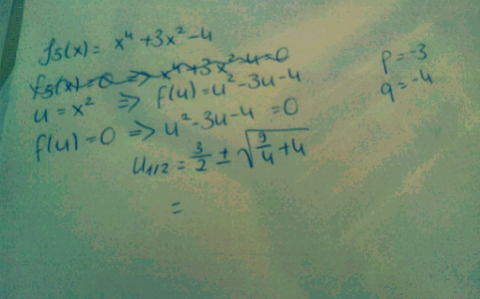 f5(x) = x⁴+3x²-4
f5(x)=0 => x⁴+3x²-4=0
u = x² => f(u)=u²-3u-4
f(u)=0 => u²-3u-4=0
u1/2 = 3/2 ± √(9/4+4)
=
p=-3
q=-4